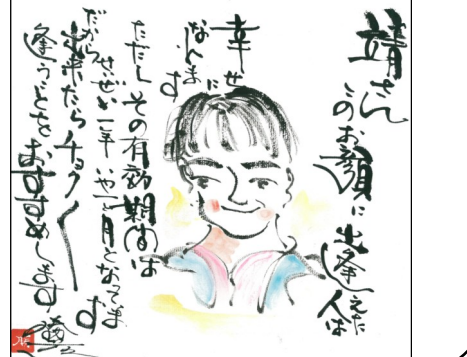 靖さん
このお顔に出逢えた人は
幸せ
になれます
ただしその有効期間は
せいぜい一年いや一ヶ月となってます
だから
出来たらチョクチョク
逢うことをおすすめします